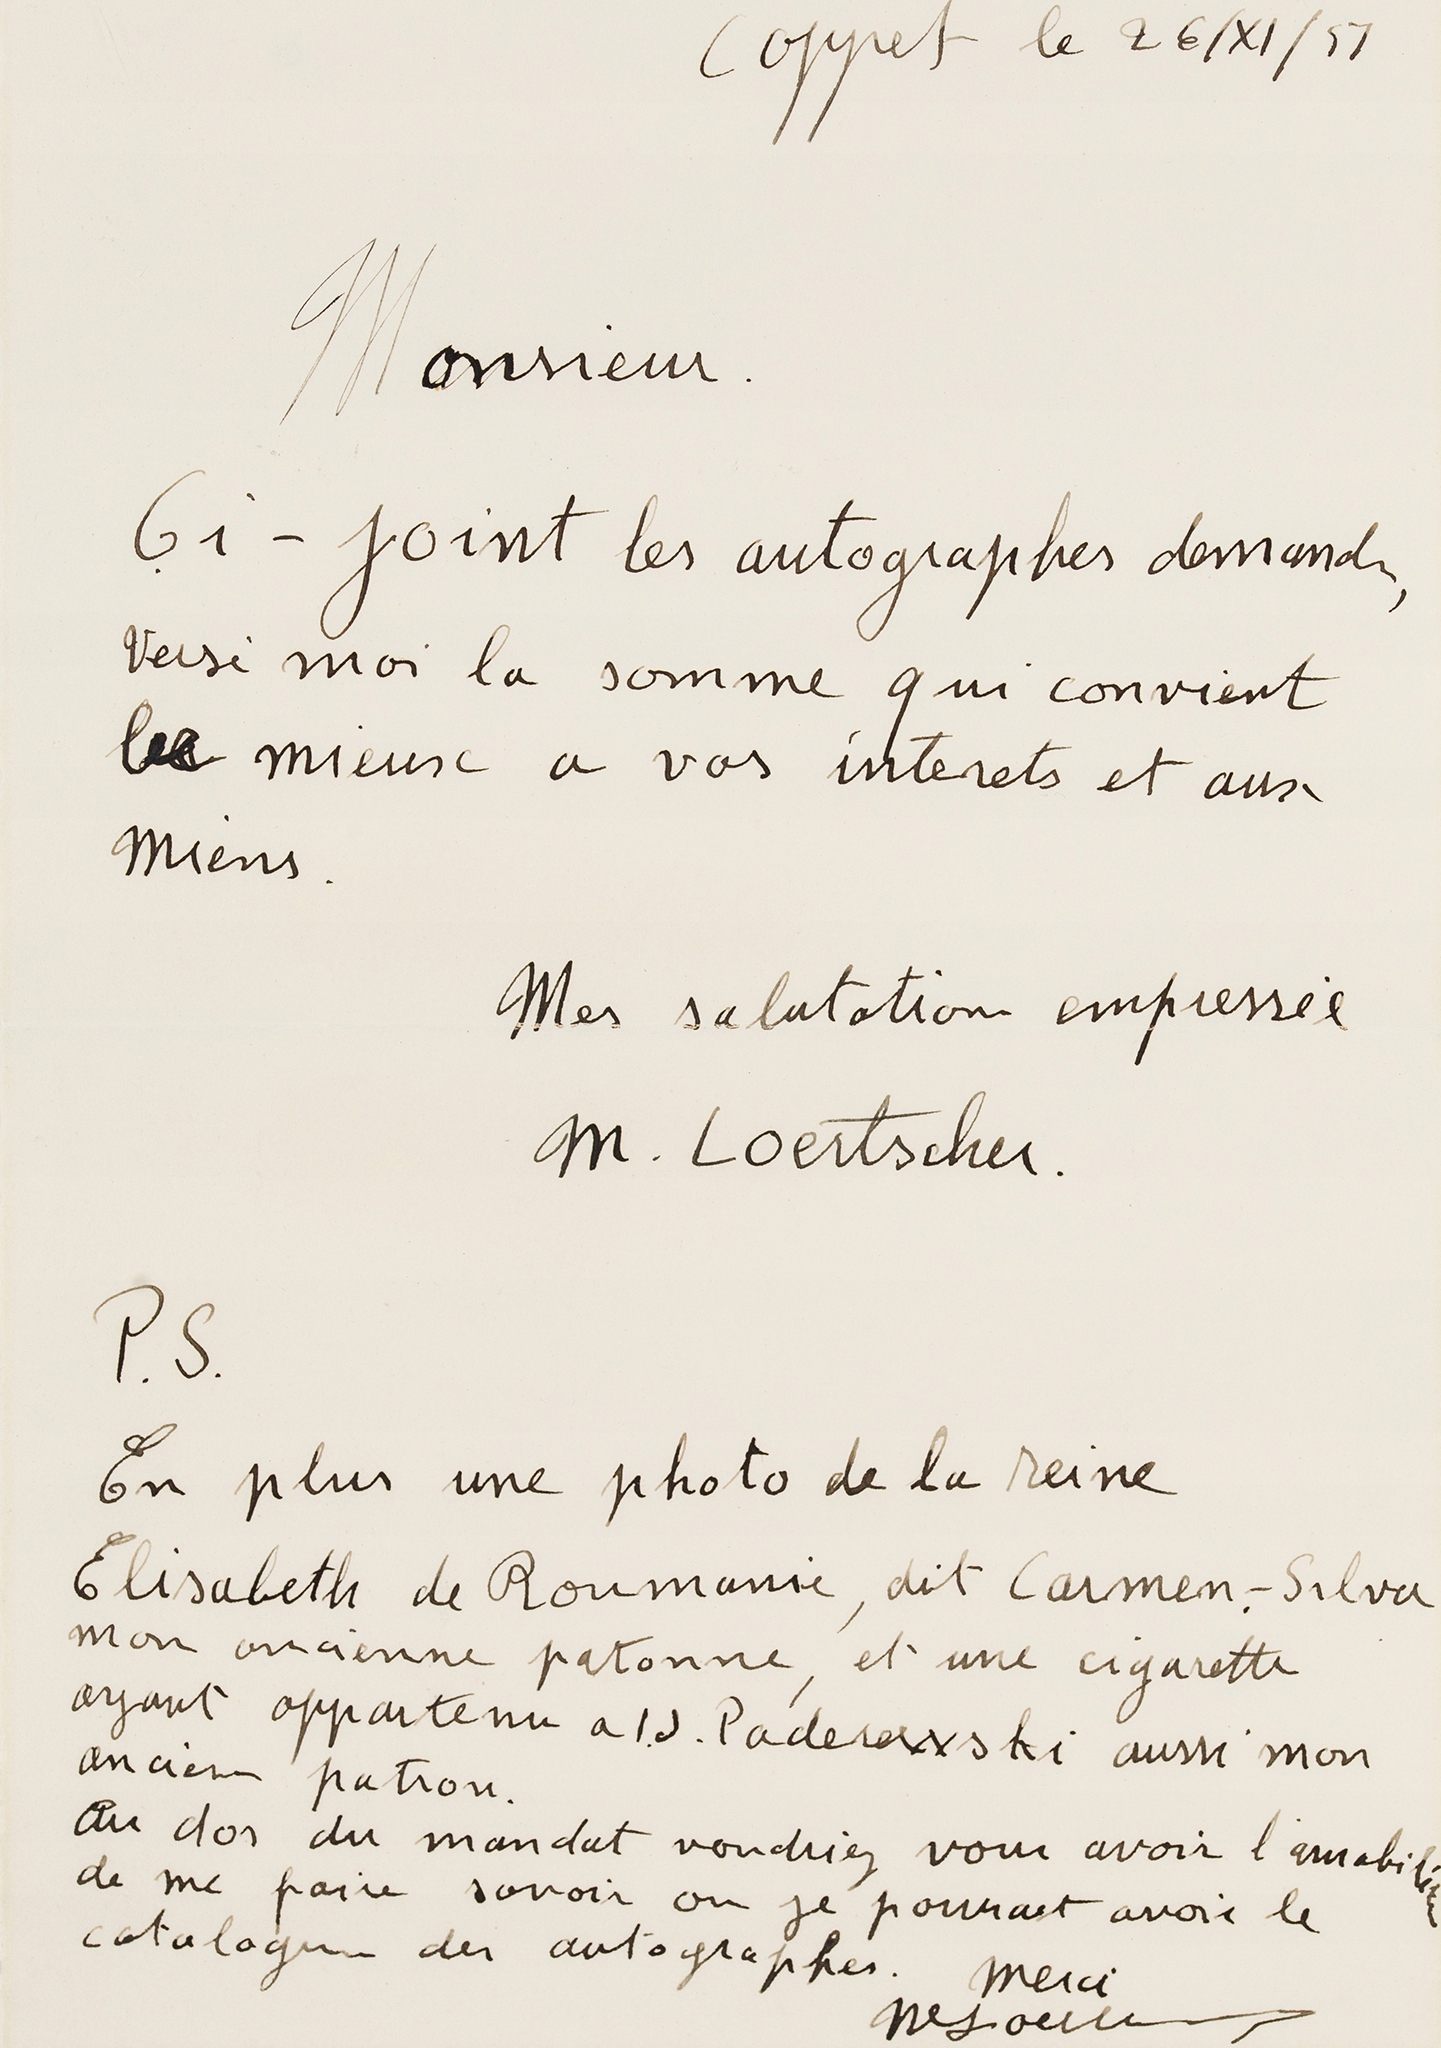 Coppet le 26/XI/51
Monsieur.
Ci-joint les autographes demandés,
Versé moi la somme qui convient
le mieux a vos interets et aux
Miens.
Mes salutation empressée
M. Loertscher.
P.S.
En plus une photo de la reine
Elisabeth de Roumanie, dit Carmen-Silva
mon ancienne patonne, et une cigarette
ayant appartenu a I.J. Paderewski aussi mon
ancien patron.
Au dos du mandat voudriez vous avoir l'amabilité
de me faire savoir ou je pourrait avoir le
catalogue des autographes. Merci